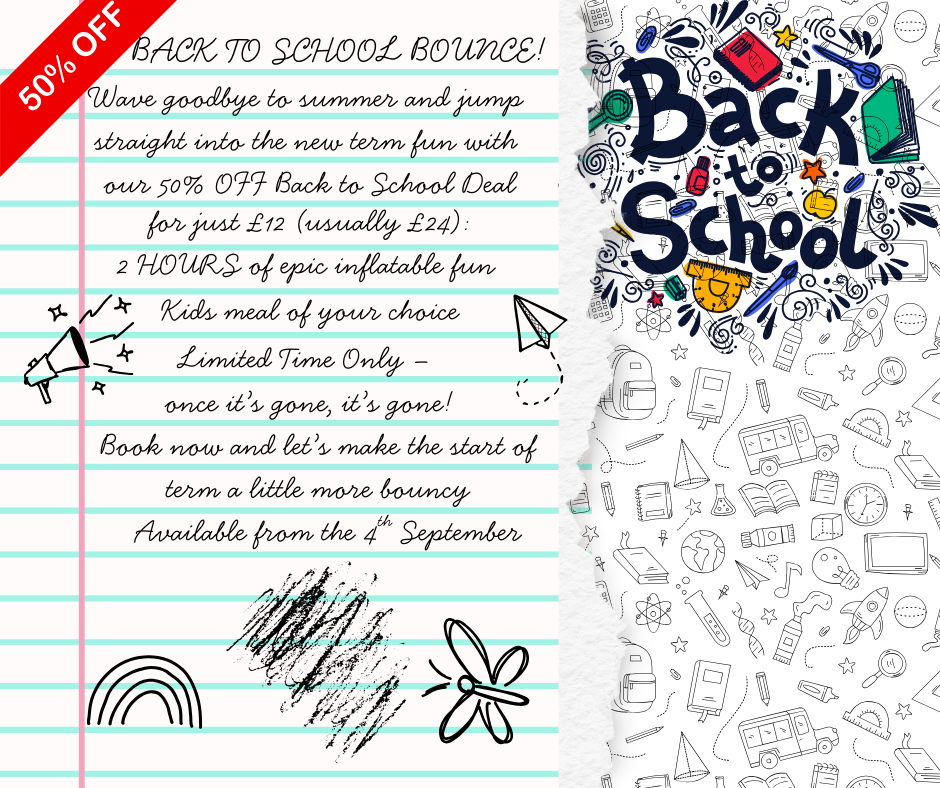 50% OFF
BACK TO SCHOOL BOUNCE!
Wave goodbye to summer and jump
straight into the new term fun with
our 50% OFF Back to School Deal
for just £12 (usually £24):
2 HOURS of epic inflatable fun
Kids meal of your choice
Limited Time Only –
once it’s gone, it’s gone!
Book now and let’s make the start of
term a little more bouncy
Available from the 4th September
Back
to
School